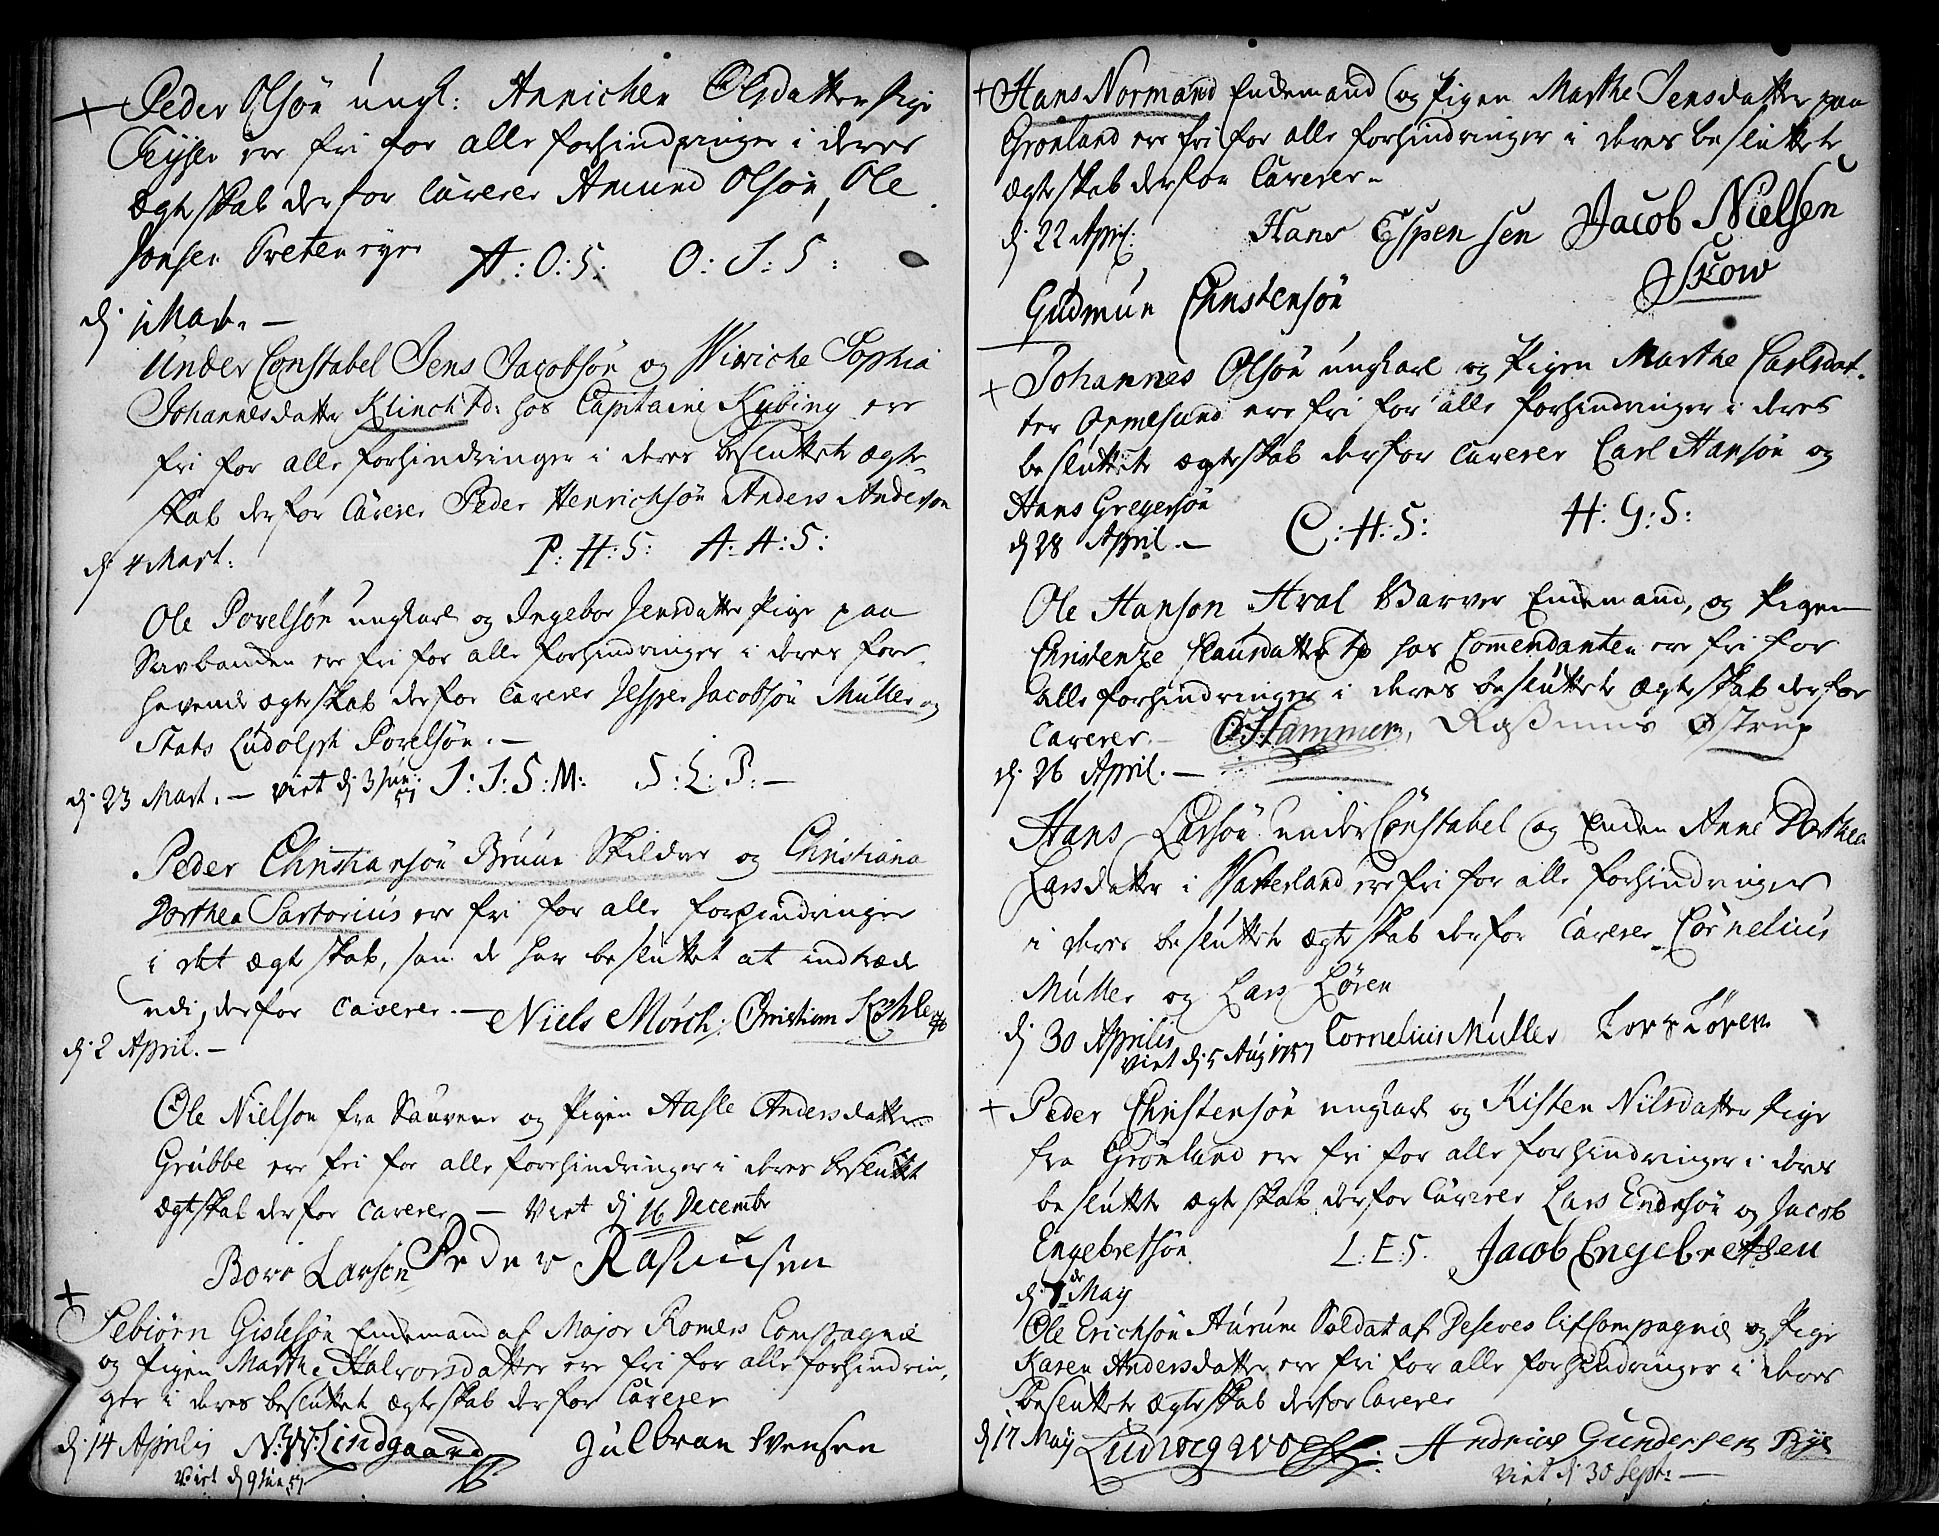 Peder Olsøn ungk: Annichen Olsdatter Pige
ere fri for alle forhindringer i deres
ægteskab derfor Caverer Amund Olsøn, Ole
Jonsen A: O: S: O: J: S:
dj 1 Mart. —
Under Constabel Jens Jacobsøn og Wiviche Sophia
Johannesdatter Klinch td: hos Capitaine Kybing ere
fri for alle forhindringer i deres besluttete ægte-
skab derfor Caverer Peder Henrichsøn Anders Anderson
dj 4 Mart: P: H: S: A: A: S:
Ole Povelsøn ungkarl og Ingebor Jensdatter Pige paa
Savbanden ere fri for alle forhindringer i deres fore-
havende ægteskab derfor Caverer Jesper Jacobsøn Müller og
Stats Ludolph Povelsøn. —
dj 23 Mart. — viet dj 3 Jun: 57 J: J: S: M: S: L: P: —
Peder Christiansøn Bruun Skilder og Christiana
Dorthea Sartorius ere fri for alle forhindringer
i det ægteskab, som de har besluttet at indtræde
udi, derfor caverer. — Niels Mörch, Christian Köhler
dj 2 April. —
Ole Nielsøn fra Sauvene og Pigen Aasle Andersdatter
Grubbe ere fri for alle forehindringer i deres besluttet
ægteskab derfor caverer — Viet dj 16 Decembr
Bore Larsøn Peder Rasmusen
+
Tebiørn Gislesøn Endemand af Major Romers Compagnie
og Pigen Marthe Halvorsdatter ere fri for alle forhindrin-
ger i deres besluttet ægteskab derfor Caverer
dj 14 Aprilis N: W: Lindgaard Gulbran Svensen
Viet dj 9 Jun 57
+ Hans Normand Endemand og Pigen Marthe Jensdatter paa
Grønland ere fri for alle forhindringer i deres besluttete
ægteskab derfor Caverer
dj 22 April: Hans Espensen Jacob Nielsen
Skow
Gudmun Christensøn
+ Johannes Olsøn ungkarl og Pigen Marthe Carlsdat-
ter Ormesund ere fri for alle forhindringer i deres
besluttete ægteskab derfor caverer Carl Hansøn og
Hans Gregersøn
dj 28 April. — C: H: S: H: G: S:
Ole Hanson Aral Barver Endemand, og Pigen
Christenze Claursdatter Tp hos Comendanten ere fri for
alle forhindringer i deres besluttete ægteskab derfor
Caverer. — O Hammer, Rasmus Østrup
dj 26 April. —
Hans Larsøn under Constabel og Enden Anne Dorthea
Larsdatter i Vatterland ere fri for alle forhindringer
i deres besluttete ægteskab derfor Caverer Cornelius
Müller og Lars Løren
dj 30 Aprilis Cornelius Müller Lors Løren
Viet dj 5 Aug 1757
+ Peder Christensøn ungkarl og Kisten Nilsdatter Pige
fra Grønland ere fri for alle forhindringer i deres
besluttete ægteskab derfor Caverer Lars Endresøn og Jacob
Engebretsøn L: E: S. Jacob Engebretsen
dj 7de May
Ole Erichsøn Aurum Soldat af Deseves lifCompagnie og Pige
Karen Andersdatter ere fri for alle forhindringer i deres
besluttete ægteskab derfor Caverer
dj 17 May Andrias Gundersen Bye
Viet dj 30 Sept: —